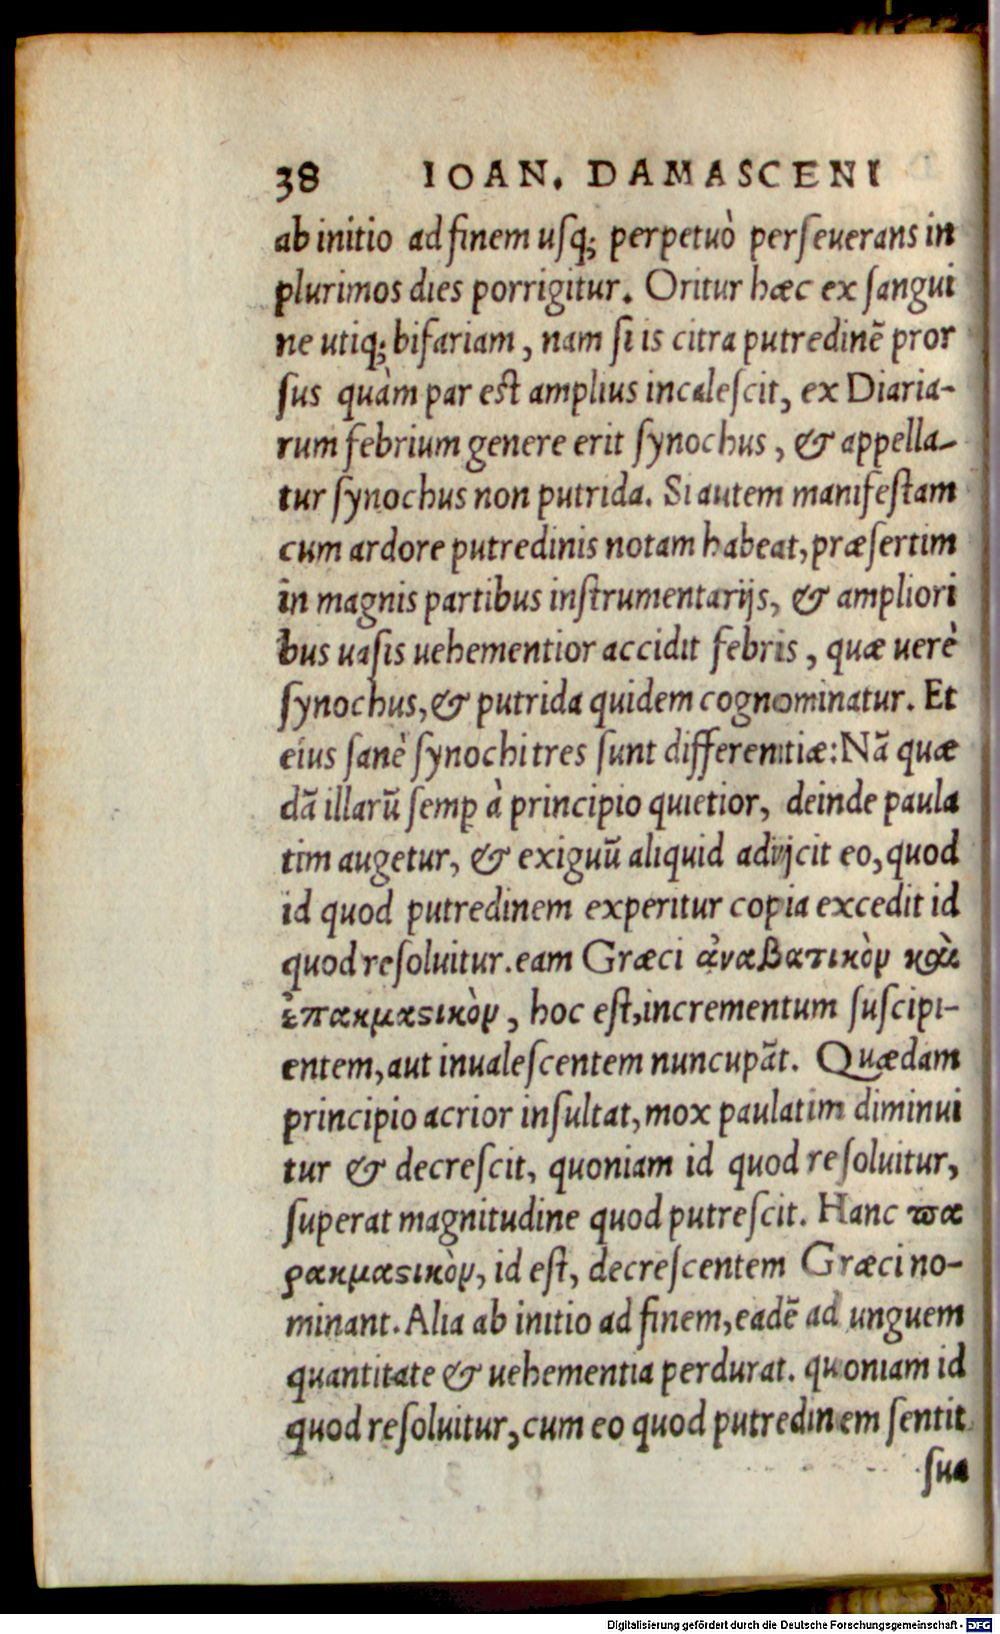 38 IOAN. DAMASCENI
ab initio ad finem uſq; perpetuò perſeuerans in
plurimos dies porrigitur. Oritur hæc ex ſangui
ne utiq; bifariam, nam ſi is citra putredinẽ pror
ſus quàm par eſt amplius incaleſcit, ex Diaria-
rum febrium genere erit ſynochus, & appella-
tur ſynochus non putrida. Si autem manifeſtam
cum ardore putredinis notam habeat, præſertim
in magnis partibus inſtrumentarijs, & ampliori
bus uaſis uehementior accidit febris, quæ uerè
ſynochus, & putrida quidem cognominatur. Et
eius ſanè ſynochi tres ſunt differentiæ: Nã quæ
dã illarũ ſemꝑ à principio quietior, deinde paula
tim augetur, & exiguũ aliquid adijcit eo, quod
id quod putredinem experitur copia excedit id
quod reſoluitur. eam Græci ἀναβατικὸν καὶ
ἐπακμαστικὸν, hoc eſt, incrementum ſuſcipi-
entem, aut inualeſcentem nuncupãt. Quædam
principio acrior inſultat, mox paulatim diminui
tur & decreſcit, quoniam id quod reſoluitur,
ſuperat magnitudine quod putreſcit. Hanc πα
ρακμαστικὸν, id eſt, decreſcentem Græci no-
minant. Alia ab initio ad finem, eadẽ ad unguem
quantitate & uehementia perdurat. quoniam id
quod reſoluitur, cum eo quod putredinem ſentit
ſua
Digitalisierung gefördert durch die Deutsche Forschungsgemeinschaft - DFG